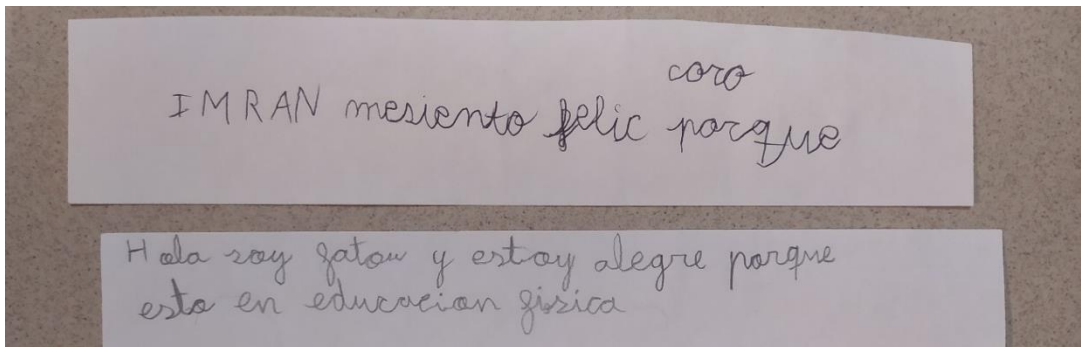 coro
IMRAN mesiento felic porque
Hola soy fatou y estoy alegre porque
esto en educacion fisica